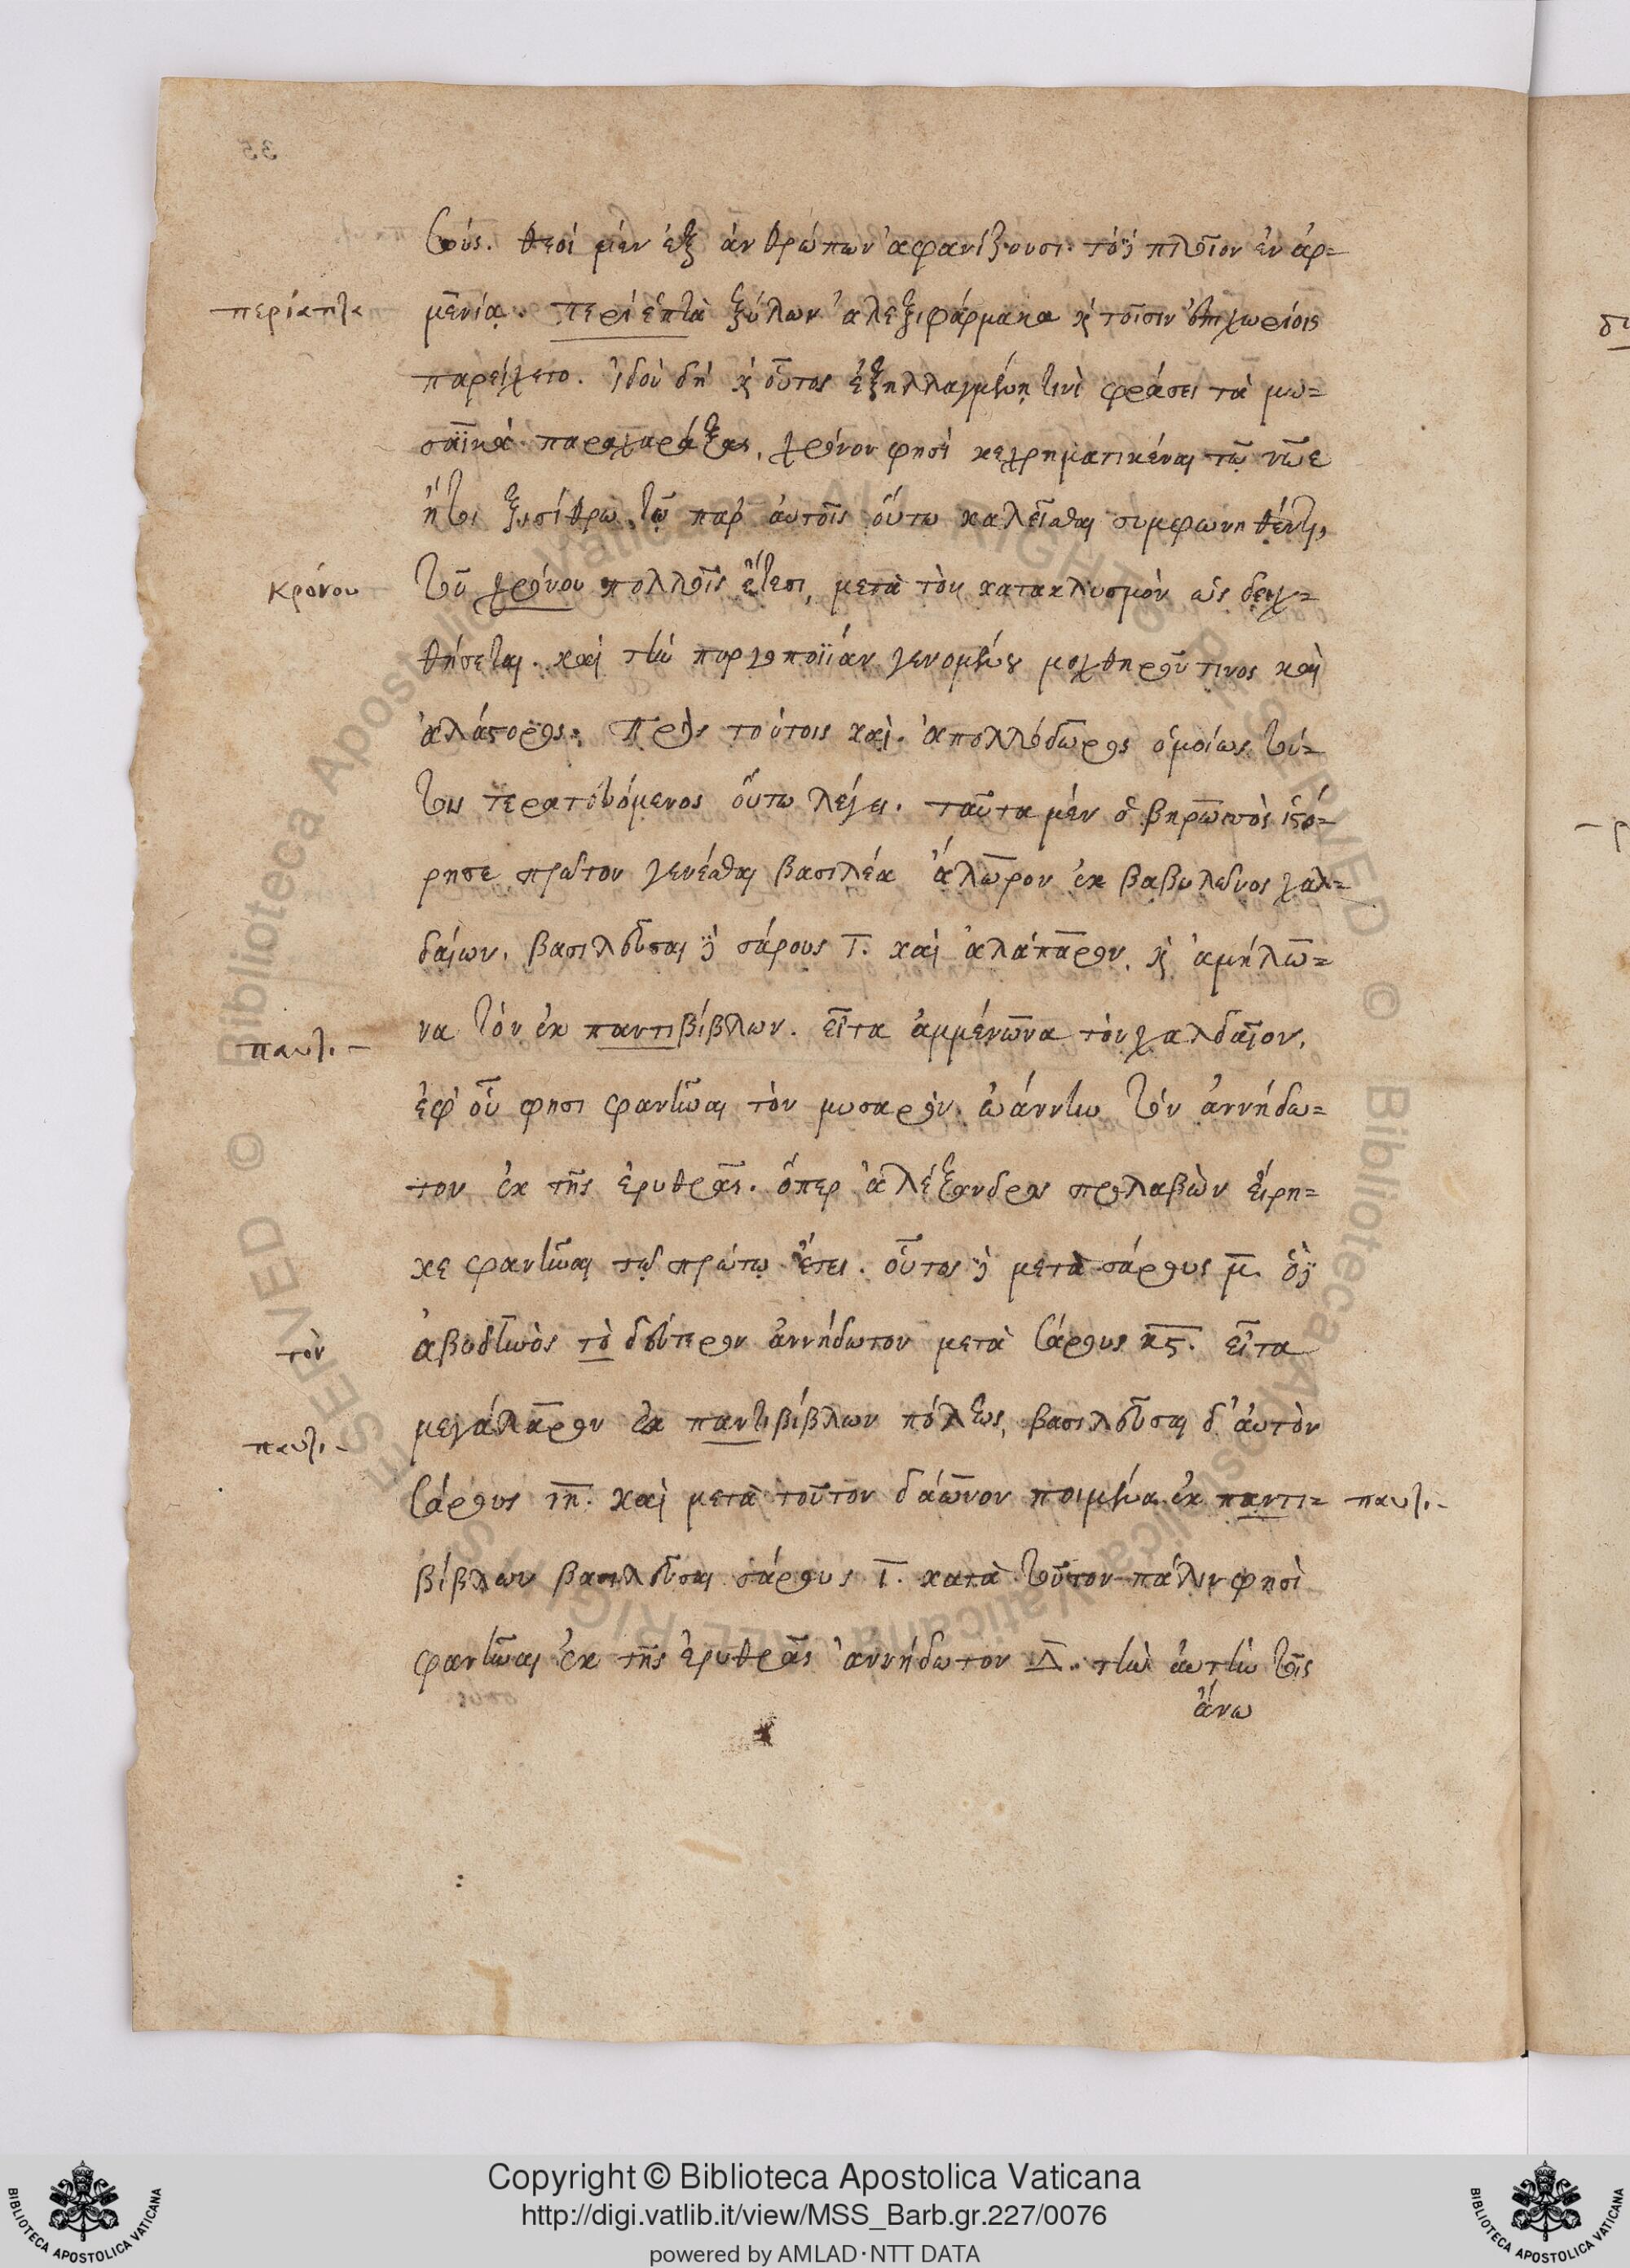 τούς. θεοὶ μὲν ἐξ ἀνθρώπων ἀφανίζουσι. τὸ δὲ πλοῖον ἐν ἀρ=
περίαπτα μενίᾳ. περὶ ἑπτὰ ξύλων ἀλεξιφάρμακα καὶ τοῖσιν ἐπιχωρίοις
παρείχετο. ἰδοὺ δὴ καὶ οὗτος ἐξηλλαγμένῃ τινὶ φράσει τὰ μω=
σαϊκὰ παραχαράξας, χρόνον φησὶ κεχρηματικέναι τῷ νῶε
ἤτοι ξισίθρω, τῷ παρ' αὐτοῖς οὕτω καλεῖσθαι συμφωνηθέντι,
κρόνου τοῦ χρόνου πολλοῖς ἔτεσι, μετὰ τὸν κατακλυσμὸν ὡς δειχ=
θήσεται. καὶ τὴν πυργοποιΐαν γενομένου μοχθηροῦ τινος καὶ
ἀλάστορος. Πρὸς τούτοις καὶ ἀπολλόδωρος ὁμοίως τού=
τοις τερατευόμενος οὕτω λέγει. ταῦτα μὲν ὁ βηρωσσὸς ἱστό=
ρησε πρῶτον γενέσθαι βασιλέα ἄλωρον ἐκ βαβυλῶνος χαλ=
δαίων. βασιλεῦσαι δὲ σάρους ι. καὶ ἀλάπαρον. καὶ ἀμήλω=
παυτι- να τὸν ἐκ παντιβίβλων. εἶτα ἀμμένωνα τὸν χαλδαῖον,
ἐφ' οὗ φησι φανῆναι τὸν μυσαρὸν. ὠάννην τὸν ἀννήδω=
τον ἐκ τῆς ἐρυθρᾶς. ὅπερ ἀλέξανδρος προλαβὼν εἴρη=
κε φανῆναι τῷ πρώτῳ ἔτει. οὗτος δὲ μετὰ σάρους μ. ὁ δὲ
τὸν ἀβυδηνὸς τὸ δεύτερον ἀννήδωτον μετὰ σάρους κϛ. εἶτα
παυτι- μεγάλαρον ἐκ παντιβίβλων πόλεως, βασιλεῦσαι δ' αὐτὸν
σάρους ιη. καὶ μετὰ τοῦτον δάωνον ποιμένα ἐκ παντι= παυτι-
βίβλων βασιλεῦσαι σάρους ι. κατὰ τοῦτον πάλιν φησὶ
φανῆναι ἐκ τῆς ἐρυθρᾶς ἀννήδωτον Δ. τὴν αὐτὴν τοῖς
ἄνω
Copyright © Biblioteca Apostolica Vaticana
http://digi.vatlib.it/view/MSS_Barb.gr.227/0076
powered by AMLAD·NTT DATA
BIBLIOTECA APOSTOLICA VATICANA
BIBLIOTECA APOSTOLICA VATICANA